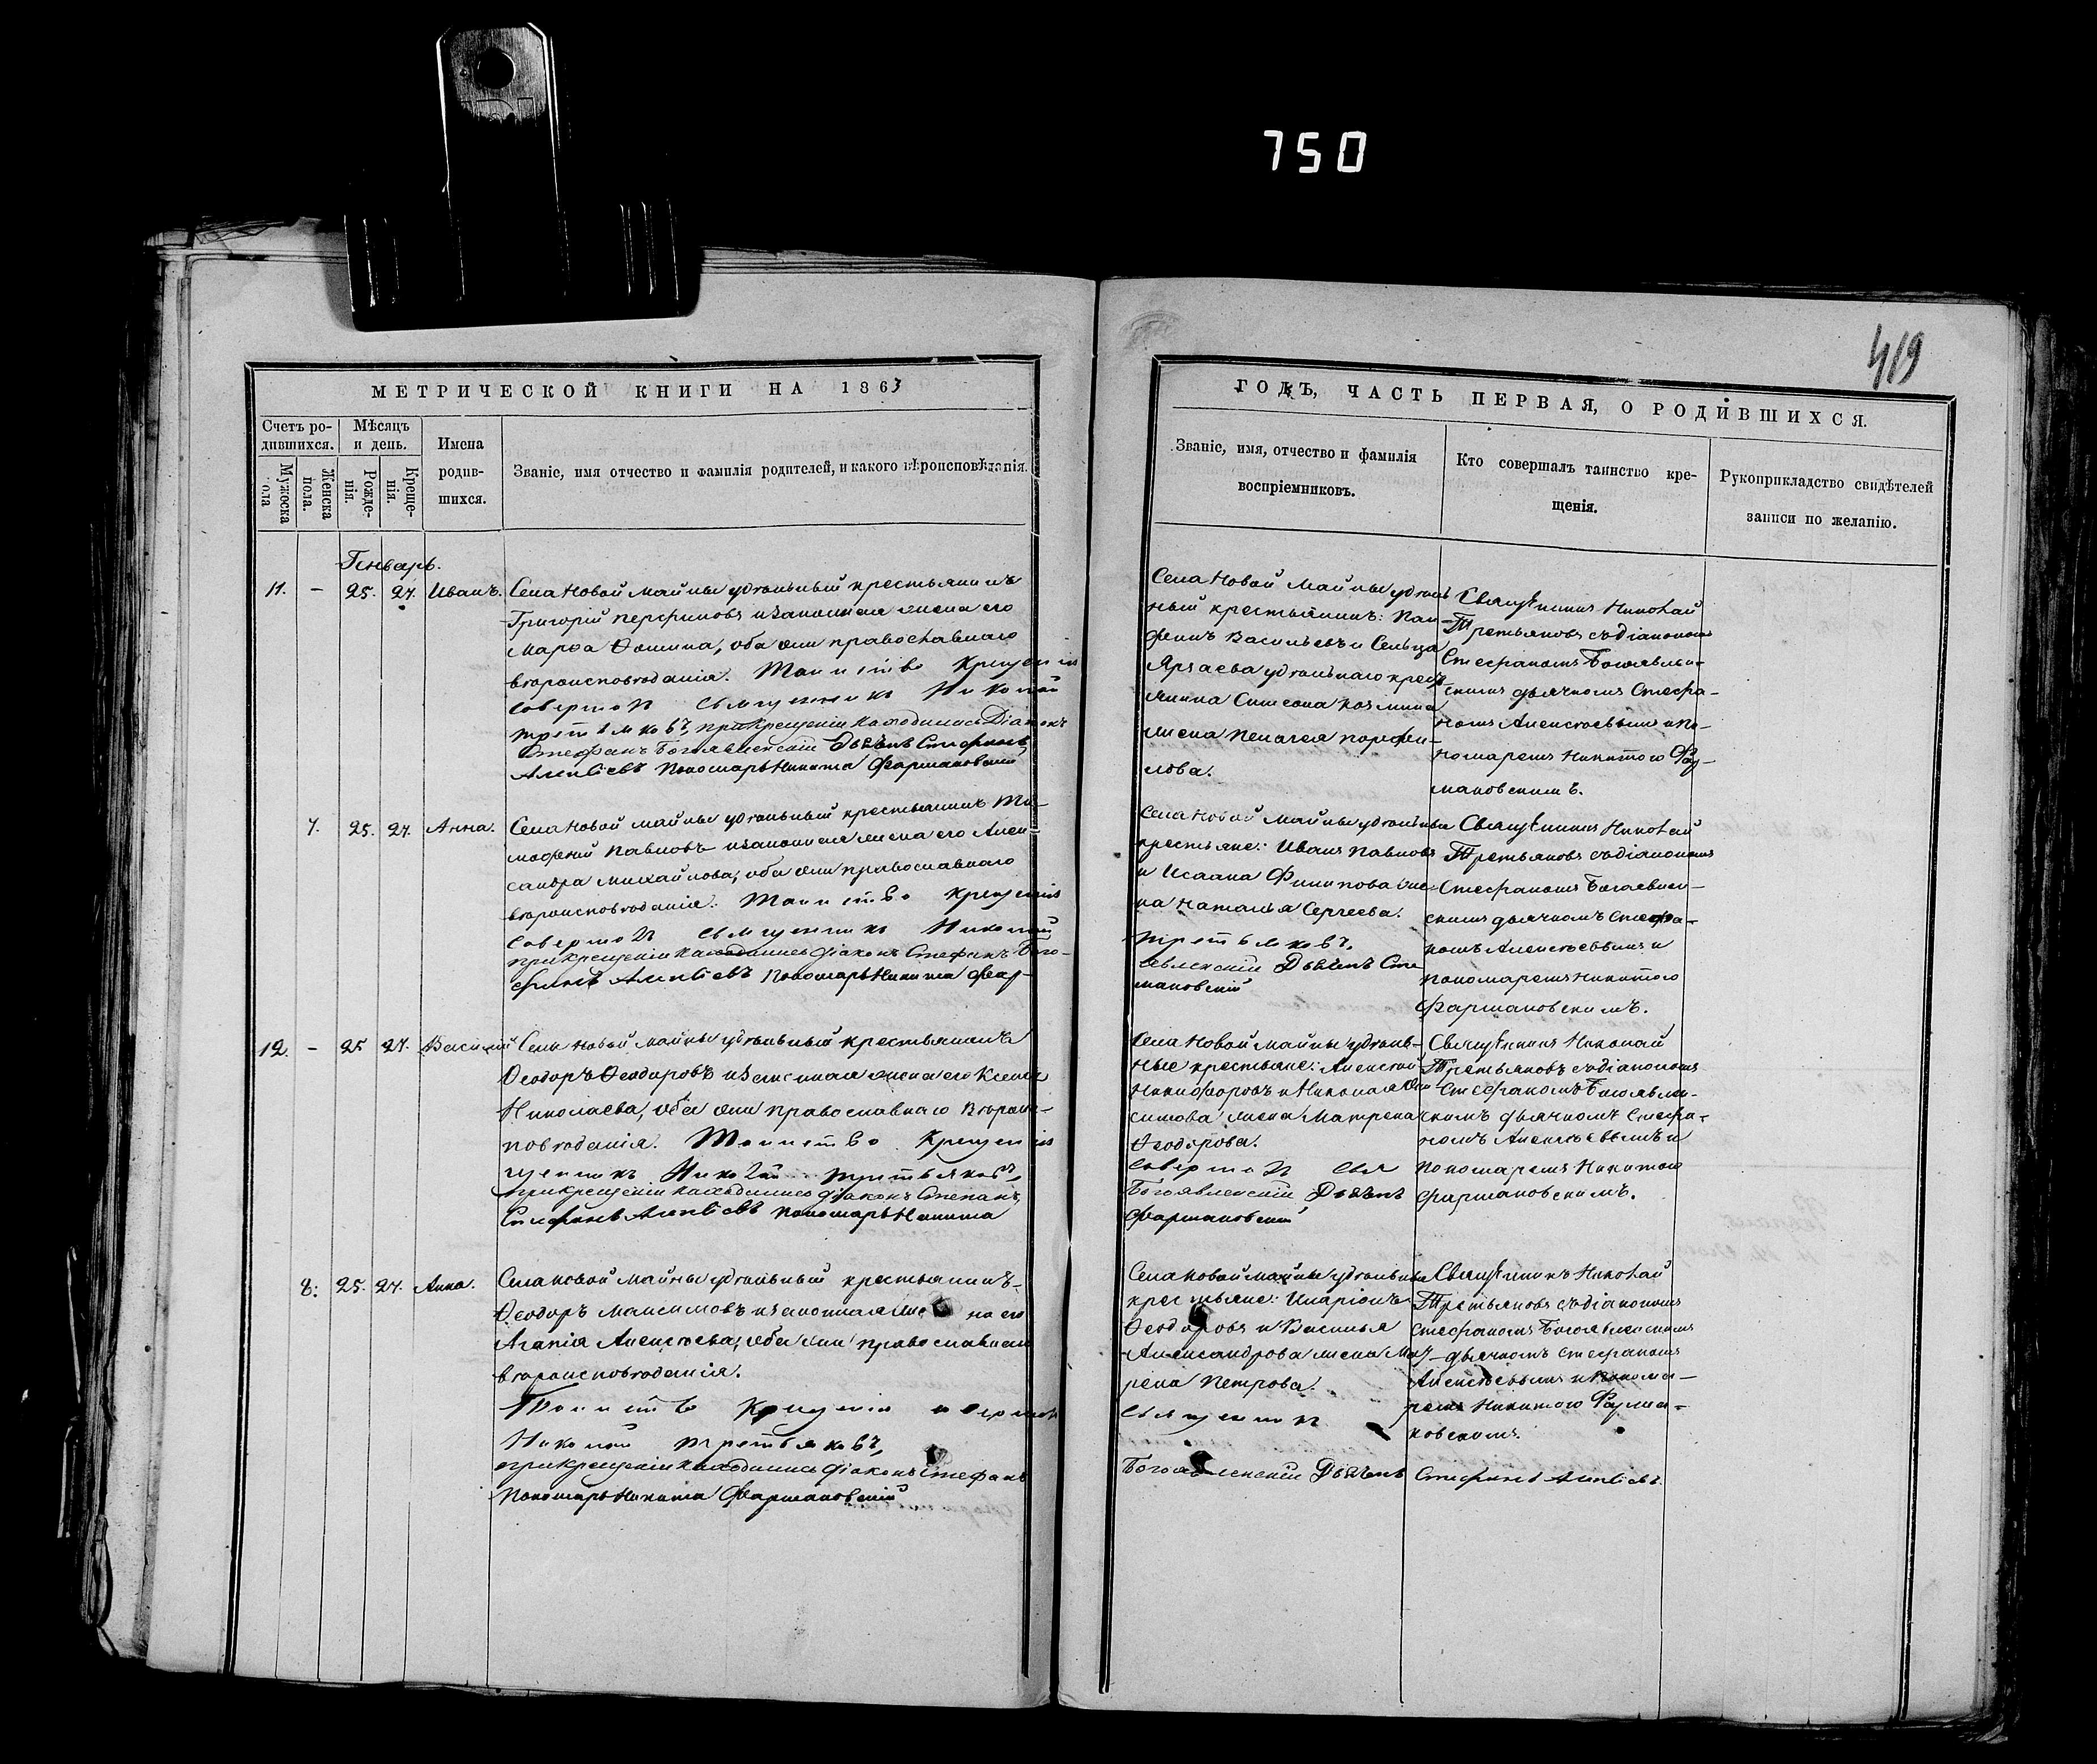 750
419
МЕТРИЧЕСКОЙ КНИГИ НА 1863
Счетъ ро-
дившихся.
Мѣсяцъ
и день.
Имена
родив-
шихся.
Мужеска
пола
Женска
пола.
Рожде-
нія.
Креще-
нія.
Званіе, имя отчество и фамилія родителей, и какого вѣроисповѣданія.
Генварь.
11. - 25. 27. Иванъ.
Села Новой Майны удѣльный крестьянинъ
Григорій Перфиловъ и законная жена его
Марѳа Ѳомина, оба они православнаго
вѣроисповѣданія. Таинство Крещенія
совершал священникъ Николай
Третьяковъ, при крещеніи находились Діаконъ
Стефанъ Богоявленскій Дьячекъ Стефанъ
Алексѣевъ Пономарь Никита Фармаковскій
7. 25. 27. Анна.
Села Новой Майны удѣльный крестьянинъ Ти-
моѳей Павловъ и законная жена его Алек-
сандра Михайлова, оба они православнаго
вѣроисповѣданія. Таинство крещенія
совершал священникъ Николай
при крещеніи находились діаконъ Стефанъ Бого-
фанъ Алексѣевъ Пономарь Никита Фар-
12. - 25 27. Василій
Села Новой Майны удѣльный крестьянинъ
Ѳеодоръ Ѳеодоровъ и законная жена его Ксенія
Николаева, оба они православнаго вѣроис-
повѣданія. Таинство Крещенія
щенникъ Николай Третьяковъ,
при крещеніи находились діаконъ Степанъ
Стефанъ Алексѣевъ Пономарь Никита
8. 25. 27. Анна.
Села Новой Майны удѣльный крестьянинъ
Ѳеодоръ Максимовъ и законная жена его
Агапія Алексѣева, оба они православнаго
вѣроисповѣданія.
Таинство Крещенія совершал
Николай Третьяковъ,
при крещеніи находились діаконъ Стефанъ
Пономарь Никита Фармаковскій
ГОДЪ, ЧАСТЬ ПЕРВАЯ, О РОДИВШИХСЯ.
Званіе, имя, отчество и фамилія
воспріемниковъ.
Кто совершалъ таинство кре-
щенія.
Рукоприкладство свидѣтелей
записи по желанію.
Села Новой Майны удѣль
ный крестьянинъ: Пан-
филъ Васильевъ и Сельца
удѣльнаго крест-
янина Симеона Козмина
жена Пелагея Порфи-
лова.
Священникъ Николай
Третьяковъ съ діакономъ
Стефаномъ Богоявлен-
скимъ дьячкомъ Стефа-
номъ Алексѣевымъ и по-
номаремъ Никитою Фар-
маковскимъ.
Села Новой Майны удѣльные
крестьяне: Иванъ Павловъ
и Исаака Филипова же-
на Наталья Сергеева.
Третьяковъ,
явленскій Дьячекъ Сте
маковскій
Священникъ Николай
Третьяковъ съ діакономъ
Стефаномъ Богоявлен-
скимъ дьячкомъ Стефа-
номъ Алексѣевымъ и
пономаремъ Никитою
Фармаковскимъ.
Села Новой Майны удѣль-
ные крестьяне: Алексей
Никифоровъ и Николая
симова жена Матрена
Ѳеодорова.
совершал свя
Богоявленскій Дьячекъ
Фармаковскій
Священникъ Николай
Третьяковъ съ діакономъ
Стефаномъ Богоявлен-
скимъ дьячкомъ Стефа-
номъ Алексѣевымъ и
пономаремъ Никитою
Фармаковскимъ.
Села Новой Майны удѣльные
крестьяне: Иларіонъ
Ѳеодоровъ и Василья
Александрова жена Мат-
рена Петрова.
священник
Богоявленскій Дьячекъ Стефанъ Алексѣевъ.
Священникъ Николай
Третьяковъ съ діакономъ
Стефаномъ Богоявленскимъ
дьячкомъ Стефаномъ
Алексѣевымъ и понома-
ремъ Никитою Фарма-
ковскимъ.